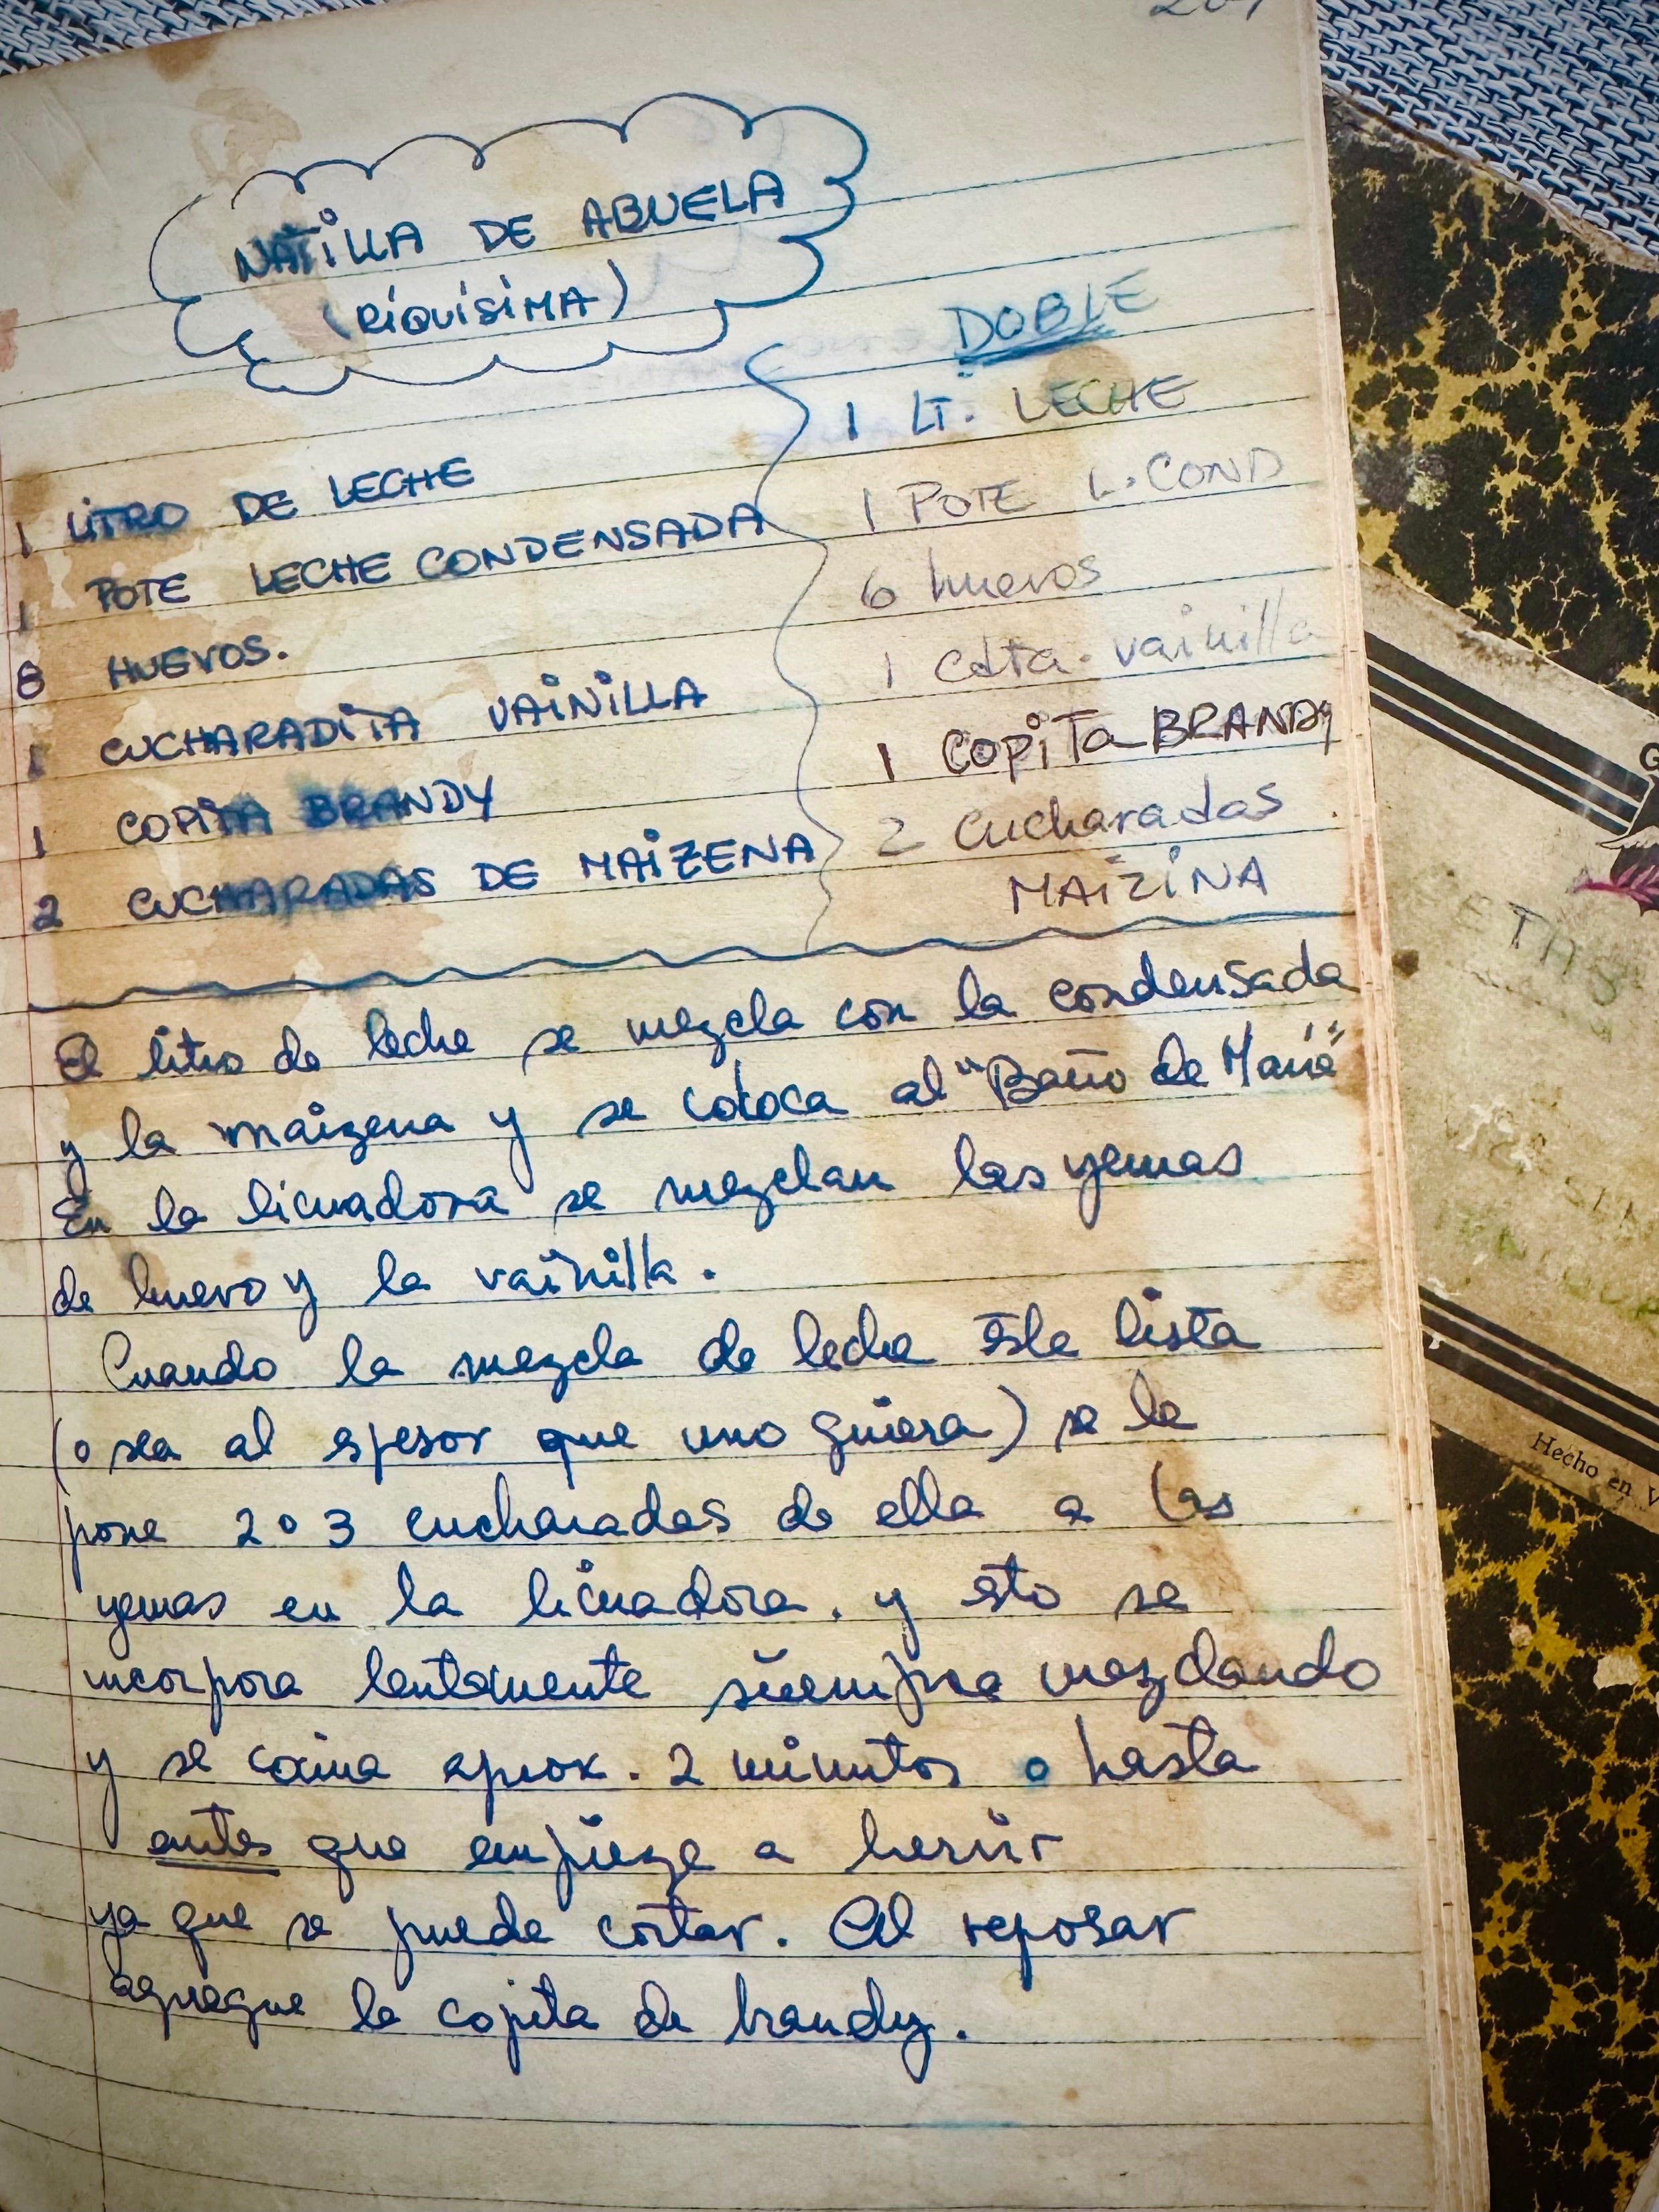 NATILLA DE ABUELA
(RIQUISIMA)
1 LITRO DE LECHE
1 POTE LECHE CONDENSADA
8 HUEVOS.
1 CUCHARADITA VAINILLA
1 COPITA BRANDY
2 CUCHARADAS DE MAIZENA
DOBLE
1 LT. LECHE
1 POTE L. COND
6 huevos
1 cdta. vainilla
1 COPITa BRANDy
2 cucharadas.
MAIZINA
El litro de leche se mezcla con la condensada
y la maizena y se coloca al "Baño de Maria"
En la licuadora se mezclan las yemas
de huevo y la vainilla.
Cuando la mezcla de leche este lista
(o sea al espesor que uno quiera) se le
pone 2 o 3 cucharadas de ella a las
yemas en la licuadora. y esto se
incorpora lentamente siempre mezclando
y se cocina aprox. 2 minutos o hasta
antes que empieze a hervir
ya que se puede cortar. Al reposar
agregue la copita de brandy.
Hecho en V